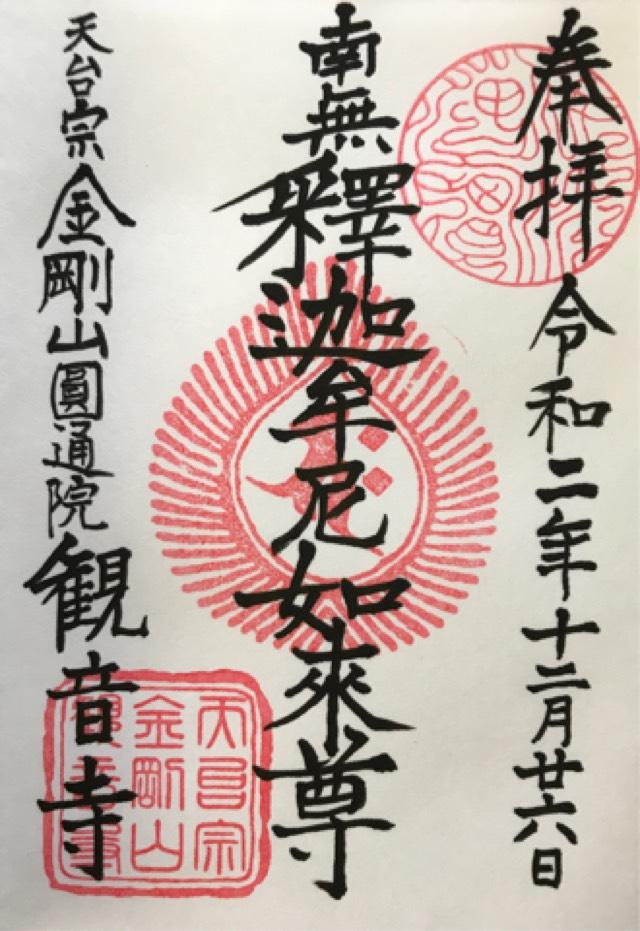 奉拝
令和二年十二月廿六日
南無釋迦牟尼如來尊
天台宗金剛山圓通院観音寺
天台宗
金剛山
観音寺